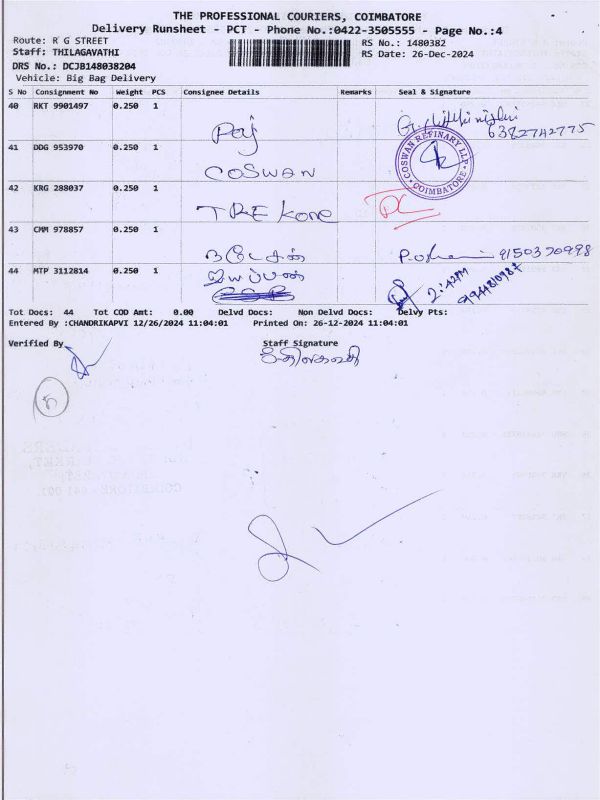 THE PROFESSIONAL COURIERS, COIMBATORE
Delivery Runsheet - PCT - Phone No.:0422-3505555 - Page No.:4
Route: R G STREET RS No.: 1480382
Staff: THILAGAVATHI RS Date: 26-Dec-2024
DRS No.: DCJB148038204
Vehicle: Big Bag Delivery
S No Consignment No Weight PCS Consignee Details Remarks Seal & Signature
40 RKT 9901497 0.250 1 Raj 6382742775
41 DDG 953970 0.250 1 COSWAN COSWAN REFINARY LLP COIMBATORE
42 KRG 288037 0.250 1 TREKone DC
43 CMM 978857 0.250 1 நடேசன் 9150370998
44 MTP 3112814 0.250 1 ஐயப்பன் 2:42PM
Tot Docs: 44 Tot COD Amt: 0.00 Delvd Docs: Non Delvd Docs: Delvy Pts:
Entered By :CHANDRIKAPVI 12/26/2024 11:04:01 Printed On: 26-12-2024 11:04:01
Verified By Staff Signature